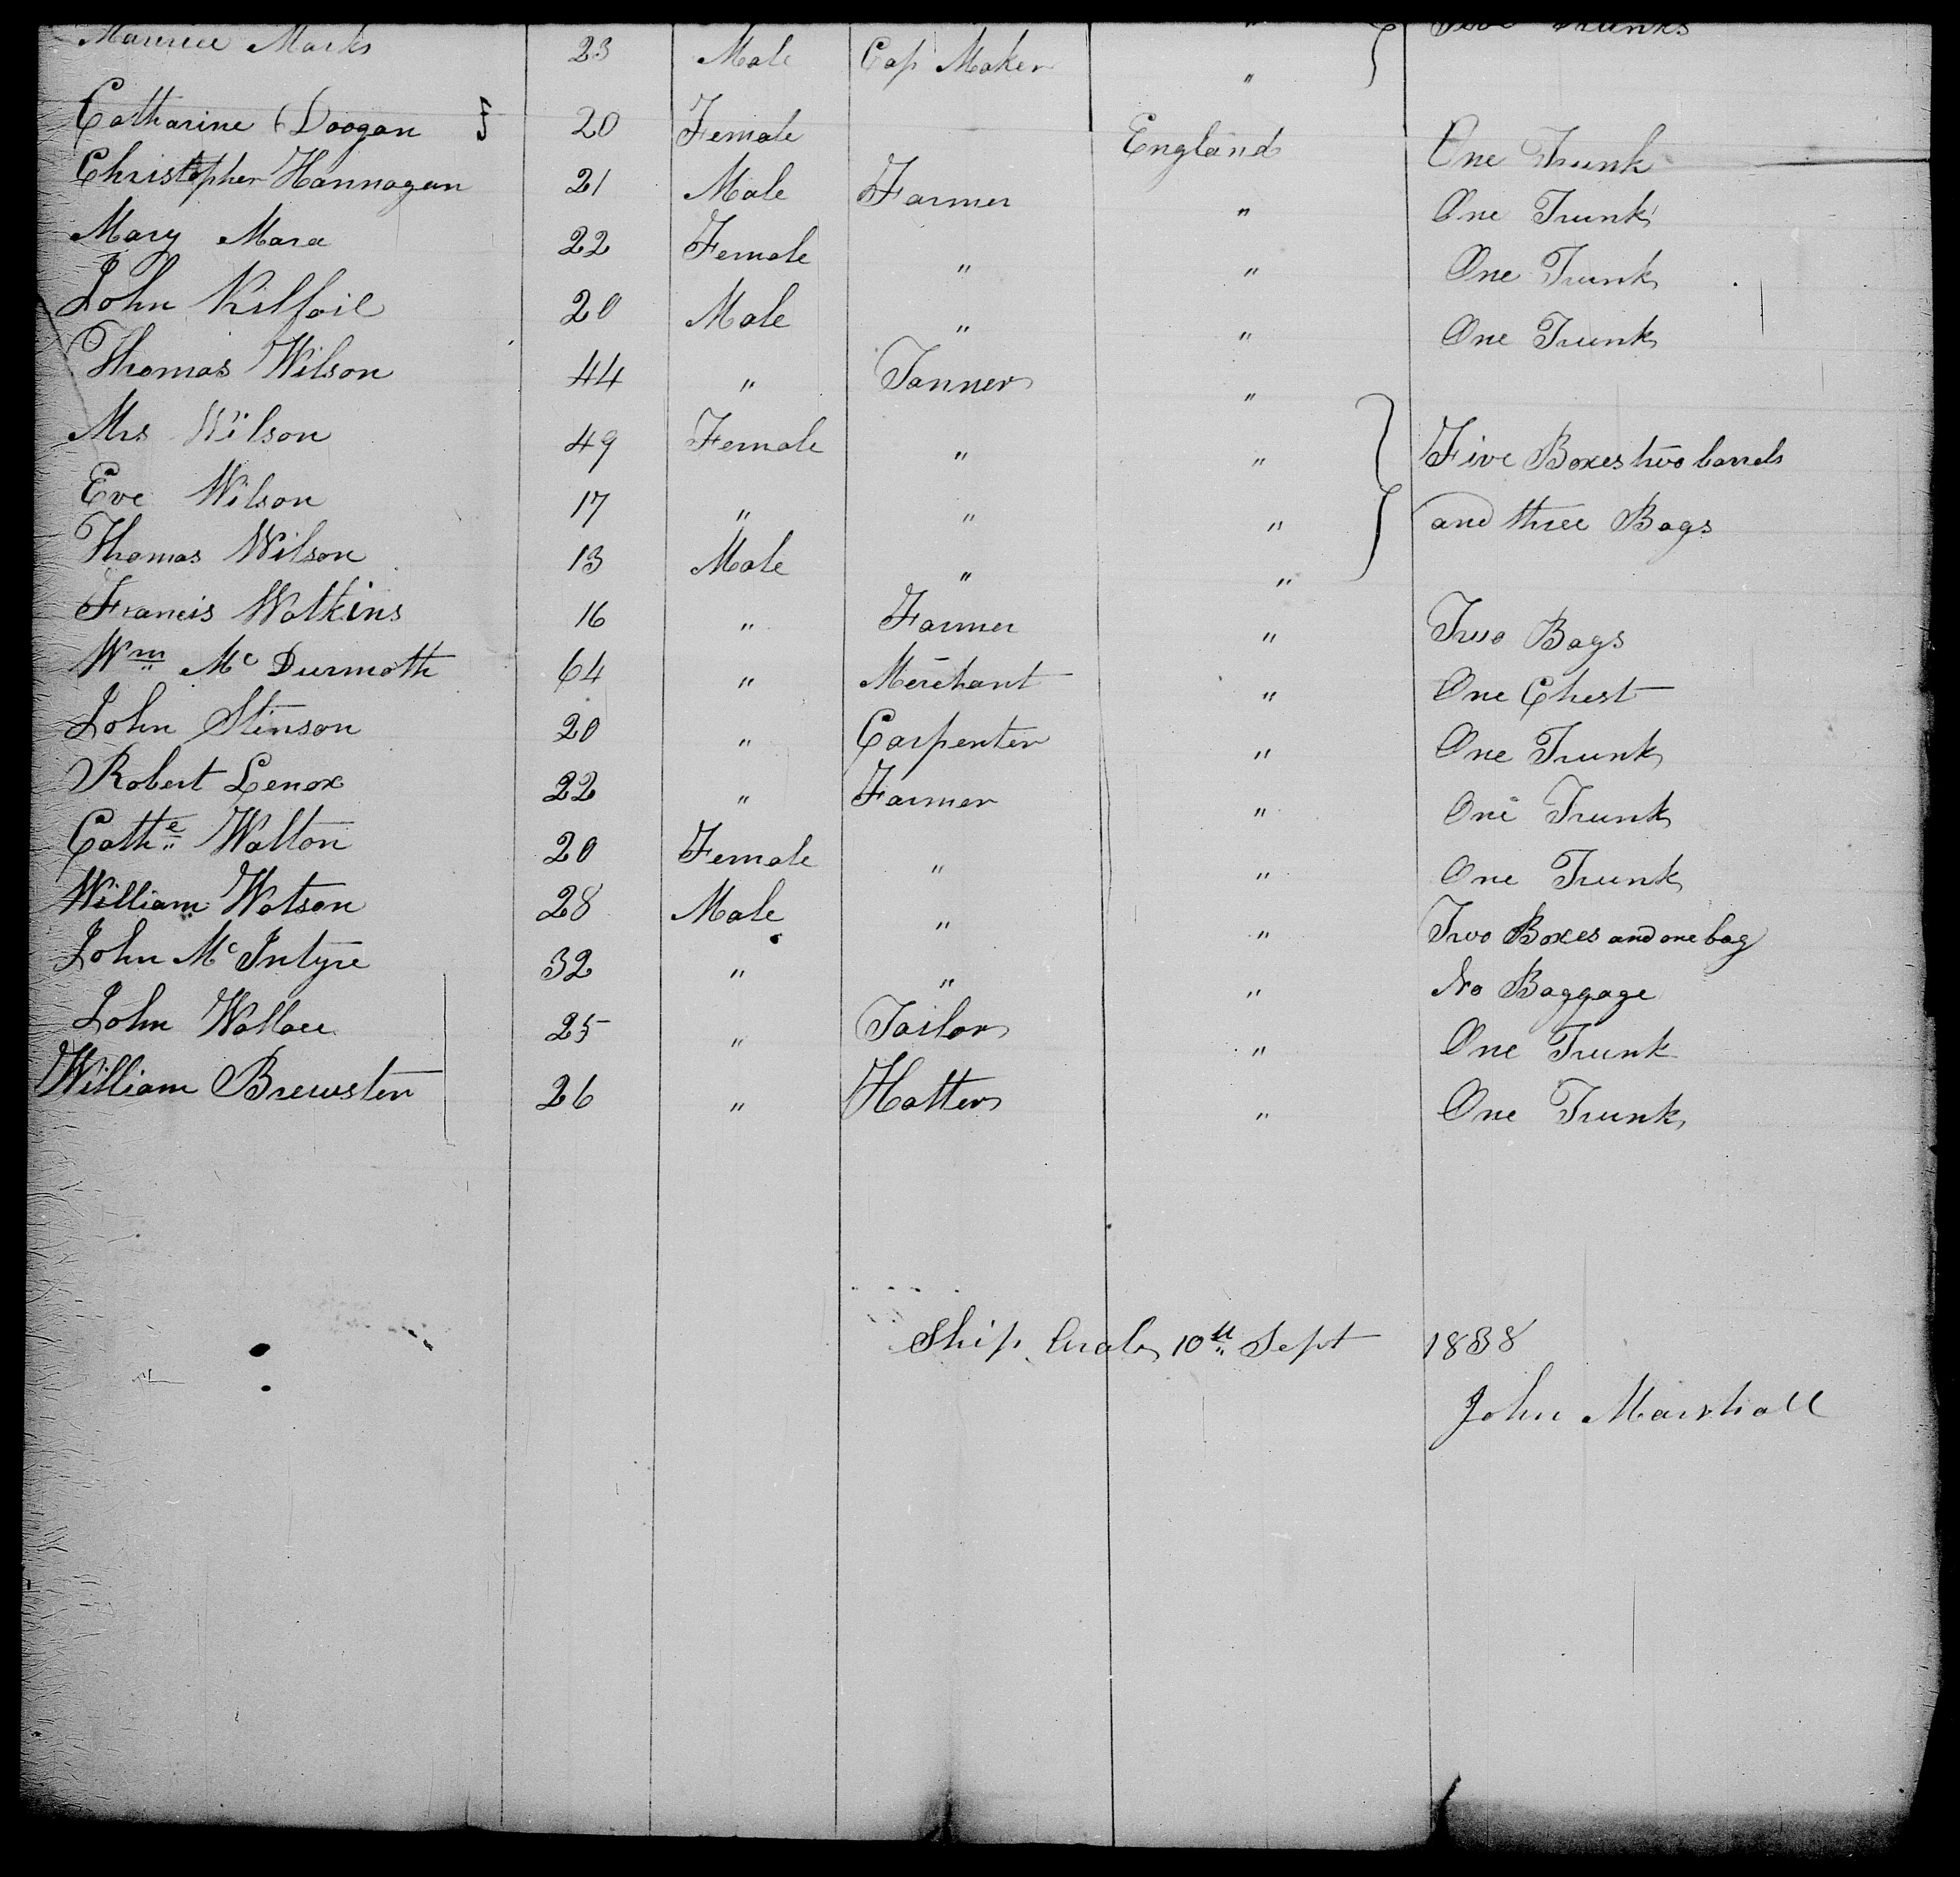 Two Trunks
Maurice Marks 23 Male Cap Maker "
Catharine Doogan 20 Female England One Trunk
Christopher Hannagan 21 Male Farmer " One Trunk
Mary Mara 22 Female " " One Trunk
John Kilfoil 20 Male " " One Trunk
Thomas Wilson 44 " Tanner "
Mrs Wilson 49 Female " " Five Boxes two barrels
Eve Wilson 17 " " " and three Bags
Thomas Wilson 13 Male " "
Francis Watkins 16 " Farmer " Two Bags
Wm Mc Durmoth 64 " Merchant " One Chest
John Stinson 20 " Carpenter " One Trunk
Robert Lenox 22 " Farmer " One Trunk
Cathe Walton 20 Female " " One Trunk
William Watson 28 Male " " Two Boxes and one bag
John McIntyre 32 " " " No Baggage
John Wallace 25 " Tailor " One Trunk
William Brewster 26 " Hatter " One Trunk
Ship 10th Sept 1838
John Marshall